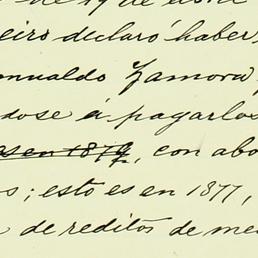 de 19 de abril
eiro declaró haber
omualdo Zamora,
dose á pagarlos
as en 1879, con abo
s; esto es en 1877,
de reditos de me